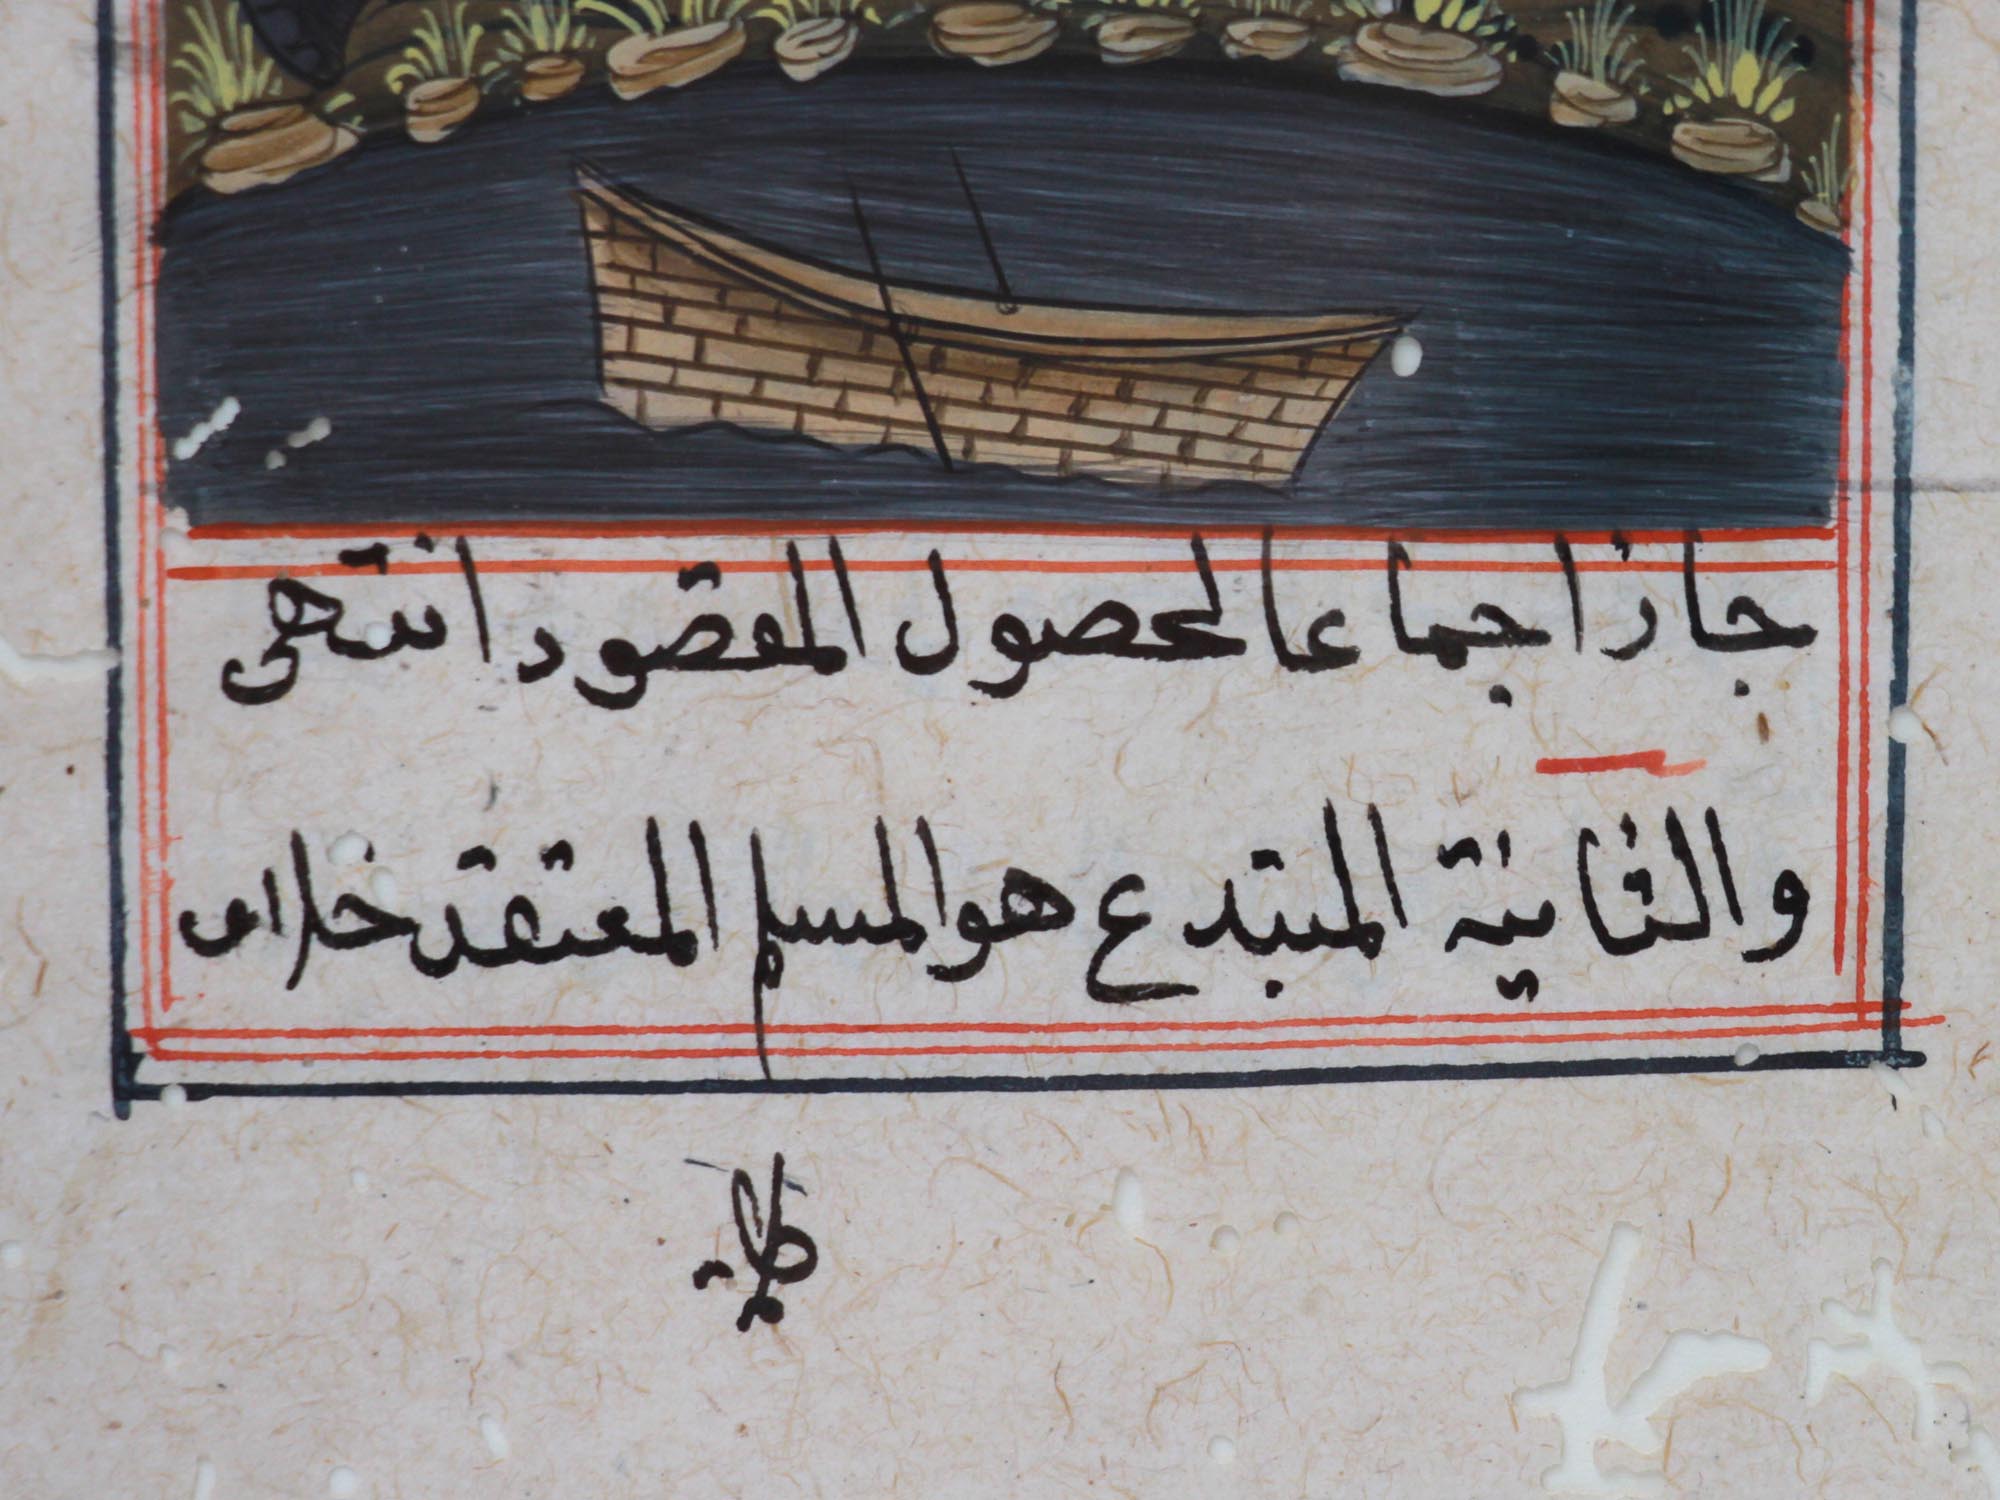 جاز اجماعا لحصول المقصود انتهى
والثانية المبتدع هو المسلم المعتقد خلاف